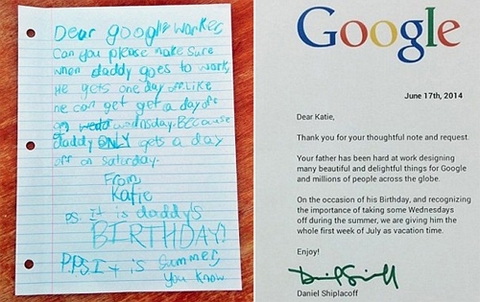 Dear google worker,
Can you please make sure
when daddy goes to work,
He gets one day off. Like
he can get get a day off
on wedd wednesday. Because
daddy ONLY gets a day
off on saturday.
From
Katie
P.S. It is daddy's
BIRTHDAY!
P.P.S. It is summer,
you know
Google
June 17th, 2014
Dear Katie,
Thank you for your thoughtful note and request.
Your father has been hard at work designing
many beautiful and delightful things for Google
and millions of people across the globe.
On the occasion of his Birthday, and recognizing
the importance of taking some Wednesdays
off during the summer, we are giving him the
whole first week of July as vacation time.
Enjoy!
Daniel Shiplacoff